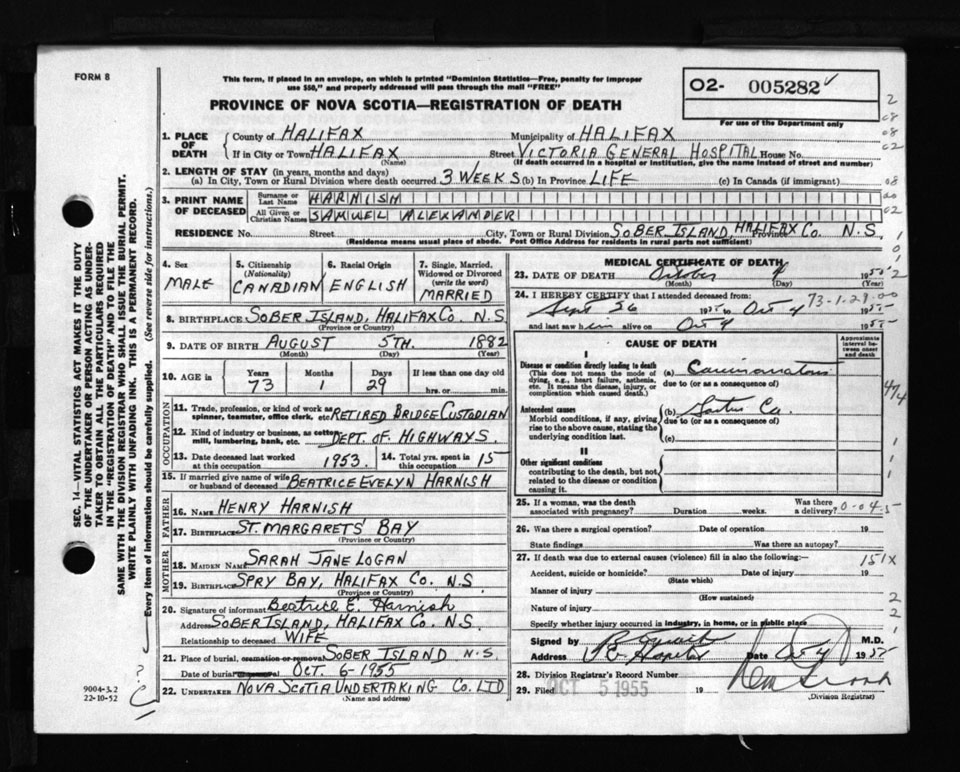 FORM 8
This form, if placed in an envelope, on which is printed "Dominion Statistics—Free, penalty for improper
use $50," and properly addressed will pass through the mail "FREE"
PROVINCE OF NOVA SCOTIA—REGISTRATION OF DEATH
02- 005282
For use of the Department only
1. PLACE OF DEATH
County of HALIFAX Municipality of HALIFAX
If in City or Town HALIFAX Street VICTORIA GENERAL HOSPITAL House No.
(Name) (If death occurred in a hospital or institution, give the name instead of street and number)
2. LENGTH OF STAY (in years, months and days)
(a) In City, Town or Rural Division where death occurred 3 WEEKS (b) In Province LIFE (c) In Canada (if immigrant)
3. PRINT NAME OF DECEASED
Surname or Last Name HARNISH
All Given or Christian Names SAMUEL ALEXANDER
RESIDENCE No. Street City, Town or Rural Division SOBER ISLAND, HALIFAX Co. Province N.S.
(Residence means usual place of abode. Post Office Address for residents in rural parts not sufficient)
4. Sex MALE
5. Citizenship (Nationality) CANADIAN
6. Racial Origin ENGLISH
7. Single, Married, Widowed or Divorced (write the word) MARRIED
8. BIRTHPLACE SOBER ISLAND, HALIFAX Co. N.S
(Province or Country)
9. DATE OF BIRTH AUGUST 5TH. 1882
(Month) (Day) (Year)
10. AGE in Years Months Days If less than one day old
73 1 29 hrs. or min.
OCCUPATION
11. Trade, profession, or kind of work as spinner, teamster, office clerk, etc. RETIRED BRIDGE CUSTODIAN
12. Kind of industry or business, as cotton mill, lumbering, bank, etc. DEPT. OF HIGHWAYS.
13. Date deceased last worked at this occupation 1953. 14. Total yrs. spent in this occupation 15
15. If married give name of wife or husband of deceased BEATRICE EVELYN HARNISH
FATHER
16. NAME HENRY HARNISH
17. BIRTHPLACE ST. MARGARETS' BAY
(Province or Country)
MOTHER
18. MAIDEN NAME SARAH JANE LOGAN
19. BIRTHPLACE SPRY BAY, HALIFAX Co. N.S
(Province or Country)
20. Signature of informant Beatrice E. Harnish
Address SOBER ISLAND, HALIFAX Co. N.S.
Relationship to deceased WIFE
21. Place of burial, cremation or removal SOBER ISLAND N.S.
Date of burial OCT. 6-1955
22. UNDERTAKER NOVA SCOTIA UNDERTAKING Co. LTD
(Name and address)
MEDICAL CERTIFICATE OF DEATH
23. DATE OF DEATH October 4 1955
(Month) (Day) (Year)
24. I HEREBY CERTIFY that I attended deceased from
Sept 26 1955 to Oct 4 1955
73-1-29-00
and last saw him alive on Oct 4 1955
CAUSE OF DEATH
Approximate interval between onset and death
I
Disease or condition directly leading to death
(This does not mean the mode of dying, e.g., heart failure, asthenia, etc. It means the disease, injury, or complication which caused death.)
(a) Carcinomatosis
due to (or as a consequence of)
Antecedent causes
Morbid conditions, if any, giving rise to the above cause, stating the underlying condition last.
(b) Gastric Ca.
due to (or as a consequence of)
(c)
II
Other significant conditions
contributing to the death, but not related to the disease or condition causing it.
25. If a woman, was the death associated with pregnancy? Duration weeks. Was there a delivery?
26. Was there a surgical operation? Date of operation 19
State findings Was there an autopsy?
27. If death was due to external causes (violence) fill in also the following:—
Accident, suicide or homicide? Date of injury 19
(State which)
151X
Manner of injury
(How sustained)
Nature of injury
Specify whether injury occurred in industry, in home, or in public place
Signed by M.D.
Address V.G. Hospital Date Oct 4 1955
28. Division Registrar's Record Number
29. Filed OCT 5 1955 19
(Division Registrar)
SEC. 14—VITAL STATISTICS ACT MAKES IT THE DUTY
OF THE UNDERTAKER OR PERSON ACTING AS UNDER-
TAKER TO OBTAIN ALL THE PARTICULARS REQUIRED
IN THE "REGISTRATION OF DEATH" AND TO FILE THE
SAME WITH THE DIVISION REGISTRAR WHO SHALL ISSUE THE BURIAL PERMIT.
WRITE PLAINLY WITH UNFADING INK. THIS IS A PERMANENT RECORD.
Every item of information should be carefully supplied. (See reverse side for instructions.)
9004-3.2
22-10-52